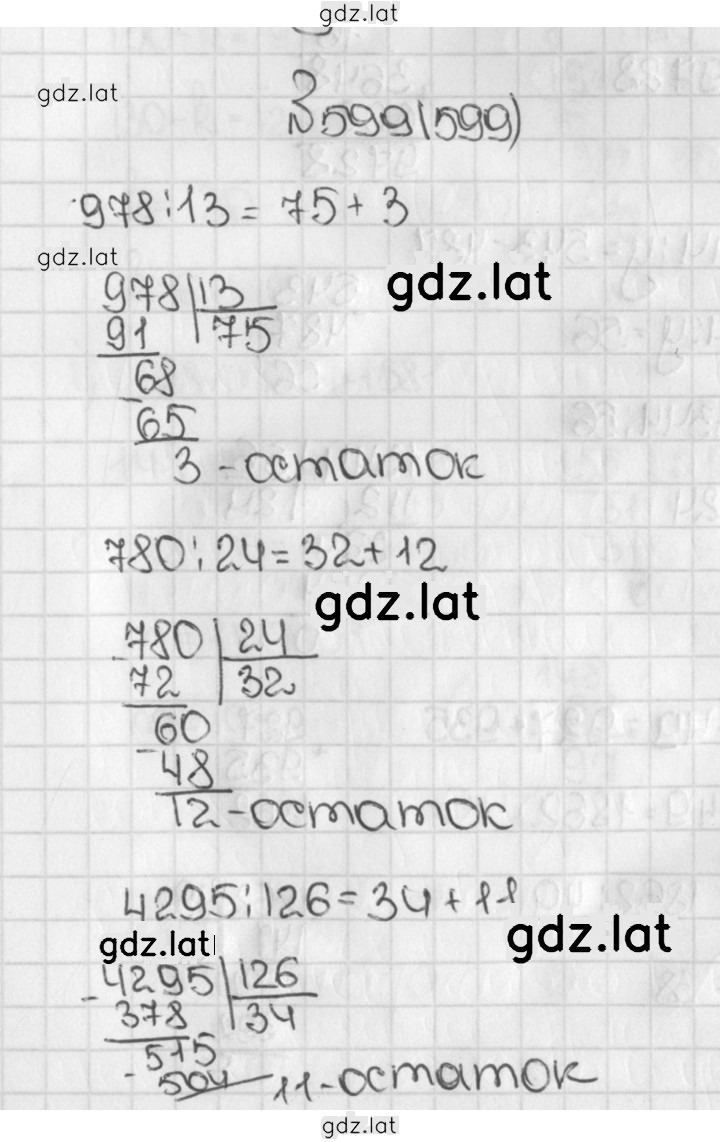 gdz.lat
gdz.lat
З 599(599)
978:13 = 75 + 3
gdz.lat
gdz.lat
978 | 13
91 | 75
68
- 65
3 - остаток
780 : 24 = 32 + 12
gdz.lat
- 780 | 24
72 | 32
60
- 48
12 - остаток
4295 : 126 = 34 + 11
gdz.lat
gdz.lat
- 4295 | 126
378 | 34
515
- 504
11 - остаток
gdz.lat